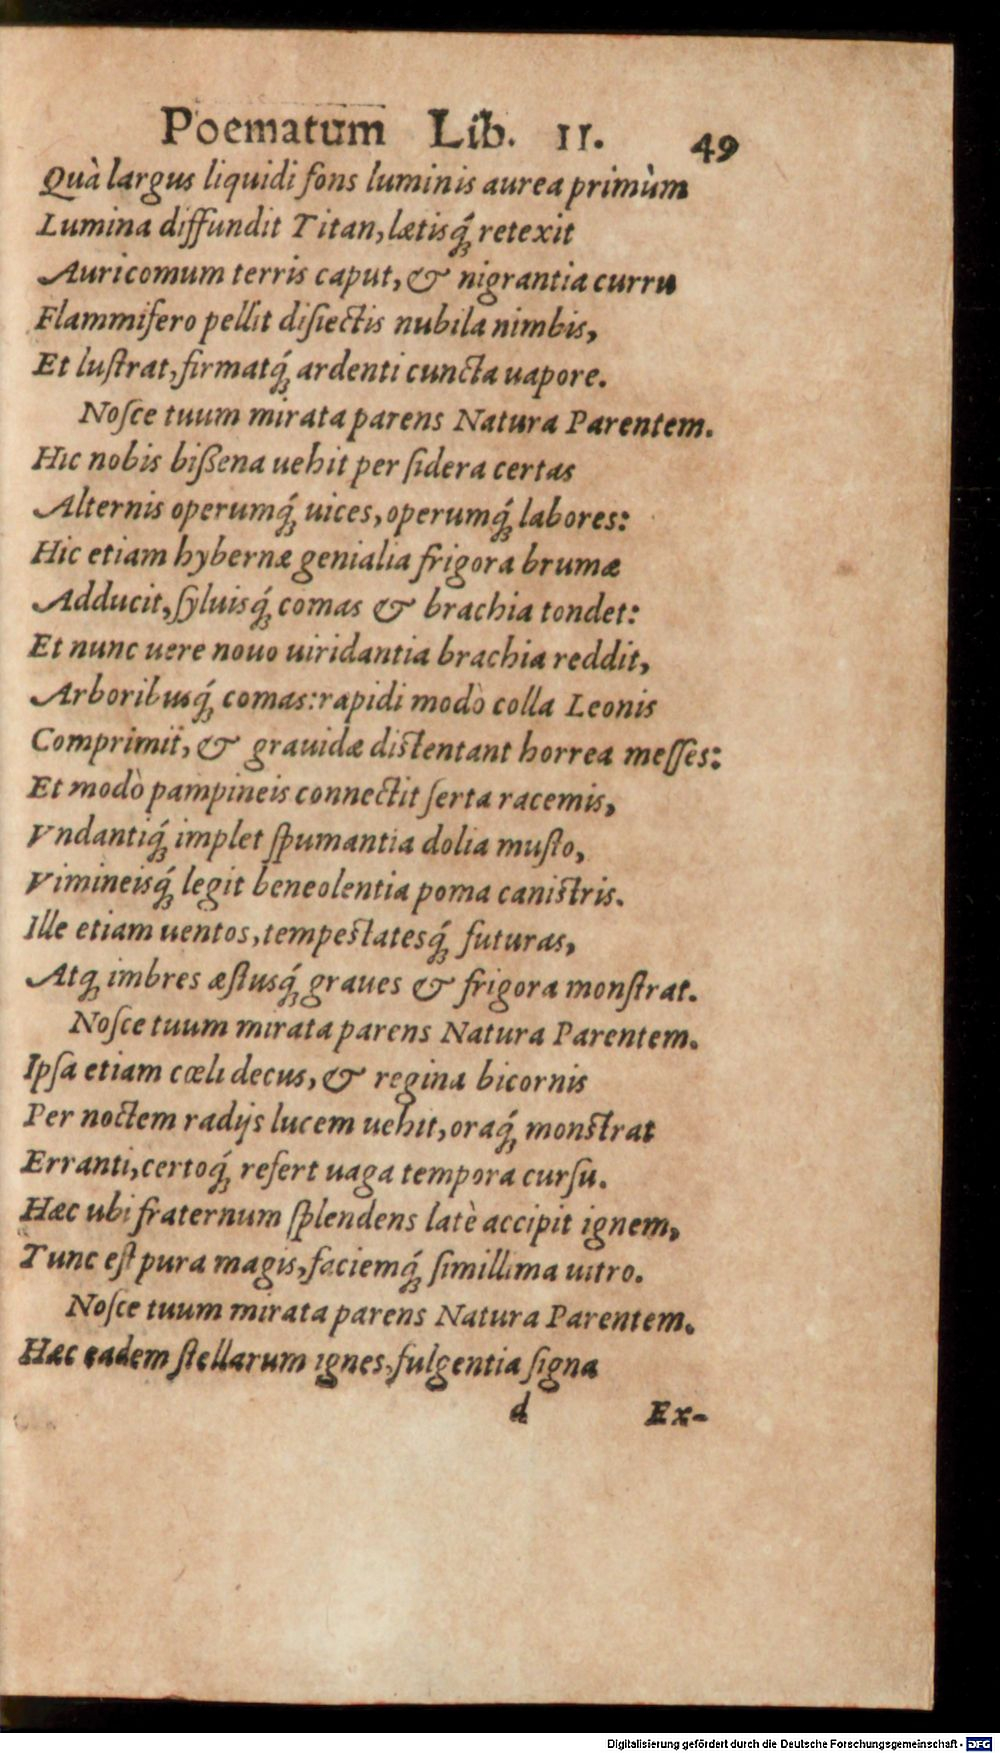 Poematum Lib. II. 49
Quà largus liquidi fons luminis aurea primùm
Lumina diffundit Titan, lætisq́ꝫ retexit
Auricomum terris caput, & nigrantia curru
Flammifero pellit disiectis nubila nimbis,
Et luſtrat, firmatq́ꝫ ardenti cuncta uapore.
Noſce tuum mirata parens Natura Parentem.
Hic nobis bißena uehit per ſidera certas
Alternis operumq́ꝫ uices, operumq́ꝫ labores:
Hic etiam hybernæ genialia frigora brumæ
Adducit, ſyluisq́ꝫ comas & brachia tondet:
Et nunc uere nouo uiridantia brachia reddit,
Arboribusq́ꝫ comas: rapidi modò colla Leonis
Comprimit, & grauidæ diſtentant horrea meſſes:
Et modò pampineis connectit ſerta racemis,
Vndantiq́ꝫ implet ſpumantia dolia muſto,
Vimineisq́ꝫ legit beneolentia poma caniſtris.
Ille etiam uentos, tempeſtatesq́ꝫ futuras,
Atqꝫ imbres æſtusq́ꝫ graues & frigora monſtrat.
Noſce tuum mirata parens Natura Parentem.
Ipſa etiam cœli decus, & regina bicornis
Per noctem radijs lucem uehit, oraq́ꝫ monſtrat
Erranti, certoq́ꝫ refert uaga tempora curſu.
Hæc ubi fraternum ſplendens latè accipit ignem,
Tunc eſt pura magis, faciemq́ꝫ ſimillima uitro.
Noſce tuum mirata parens Natura Parentem.
Hæc eadem ſtellarum ignes, fulgentia ſigna
d Ex-
Digitalisierung gefördert durch die Deutsche Forschungsgemeinschaft - DFG